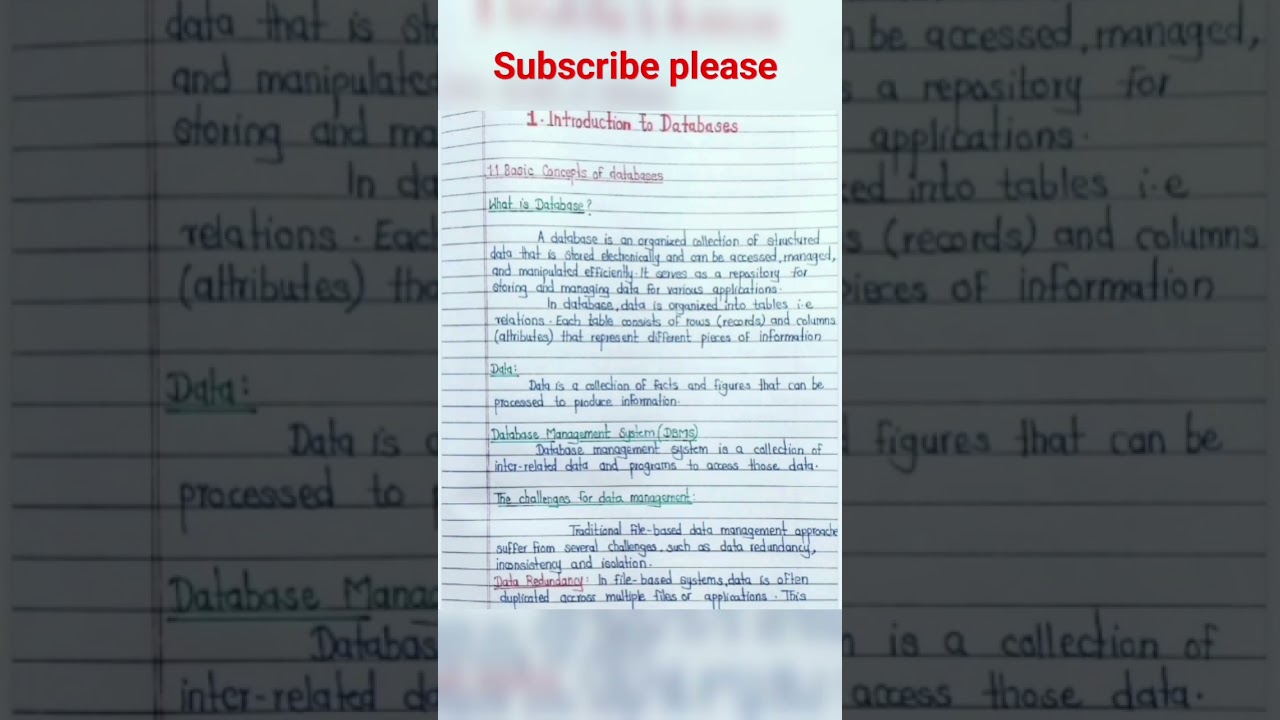 Subscribe please
1. Introduction to Databases
1.1 Basic Concepts of databases
What is Database?
A database is an organized collection of structured
data that is stored electronically and can be accessed, managed,
and manipulated efficiently. It serves as a repository for
storing and managing data for various applications.
In database, data is organized into tables i.e
relations. Each table consists of rows (records) and columns
(attributes) that represent different pieces of information
Data:
Data is a collection of facts and figures that can be
processed to produce information.
Database Management System (DBMS)
Database management system is a collection of
inter-related data and programs to access those data.
The challenges for data management:
Traditional file-based data management approache
suffer from several challenges, such as data redundancy,
inconsistency and isolation.
Data Redundancy: In file-based systems, data is often
duplicated accross multiple files or applications. This